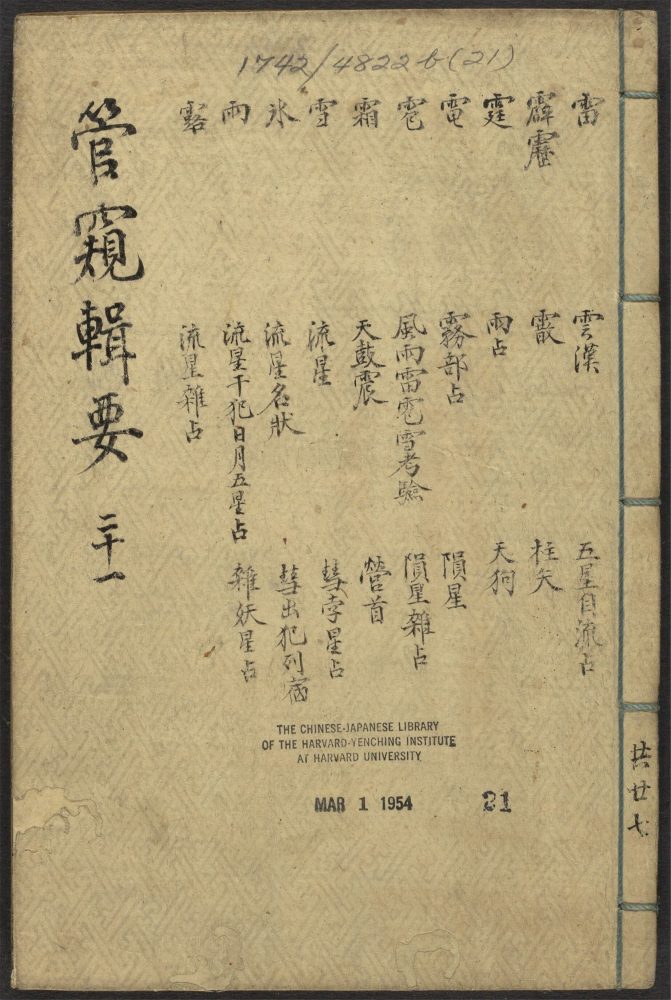 1742/4822 b (21)
管窺輯要 二十一
雷
霹靂
霆
電
雹
霜
雪
氷
雨
露
雲漢
霰
雨占
霧部占
風雨雷雹雪考驗
天鼓震
流星
流星名狀
流星干犯日月五星占
流星雜占
五星自流占
枉矢
天狗
隕星
隕星雜占
營首
彗孛星占
彗出犯列宿
雜妖星占
THE CHINESE-JAPANESE LIBRARY
OF THE HARVARD-YENCHING INSTITUTE
AT HARVARD UNIVERSITY
MAR 1 1954
21
共廿七